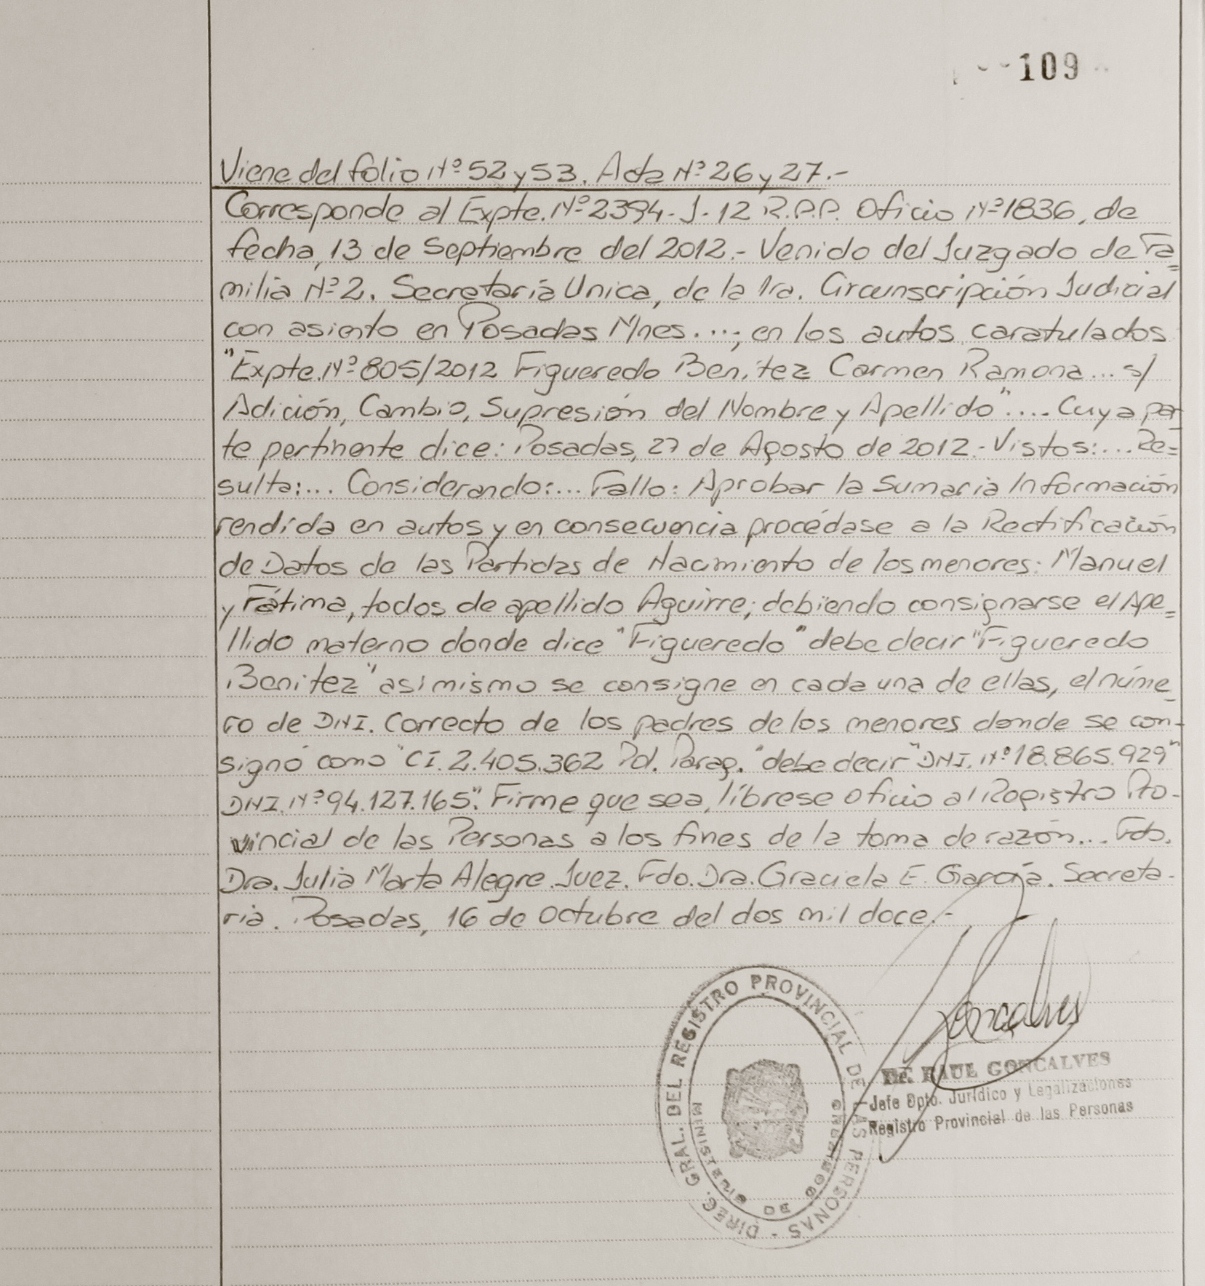 109
Viene del folio Nº 52 y 53. Acta Nº 26 y 27.-
Corresponde al Expte. Nº 2394-J-12 R.P.P. Oficio Nº 1836, de
fecha, 13 de Septiembre del 2012.- Venido del Juzgado de Fa=
milia Nº 2. Secretaría Unica, de la 1ra. Circunscripción Judicial
con asiento en Posadas Mnes...; en los autos caratulados
"Expte. Nº 805/2012 Figueredo Benitez Carmen Ramona... s/
Adición, Cambio, Supresión del Nombre y Apellido".... Cuya par
te pertinente dice: Posadas, 27 de Agosto de 2012.- Vistos:... Re=
sulta:... Considerando:... Fallo: Aprobar la Sumaria Información
rendida en autos y en consecuencia procédase a la Rectificación
de Datos de las Partidas de Nacimiento de los menores: Manuel
y Fátima, todos de apellido Aguirre; debiendo consignarse el Ape=
llido materno donde dice "Figueredo" debe decir "Figueredo
Benitez" asimismo se consigne en cada una de ellas, el núme
ro de DNI. Correcto de los padres de los menores donde se con-
signó como "CI. 2.405.362 Pol. Parag. "debe decir "DNI. Nº 18.865.929"
DNI. Nº 94.127.165". Firme que sea, líbrese oficio al Registro Pro-
vincial de las Personas a los fines de la toma de razón... Fdo.
Dra. Julia Marta Alegre. Juez. Fdo. Dra. Graciela E. García. Secreta-
ria. Posadas, 16 de Octubre del dos mil doce.-
Goncalves
Dr. RAUL GONCALVES
Jefe Dpto. Jurídico y Legalizaciones
Registro Provincial de las Personas
DIREC. GRAL. DEL REGISTRO PROVINCIAL DE LAS PERSONAS -
MINISTERIO DE GOBIERNO